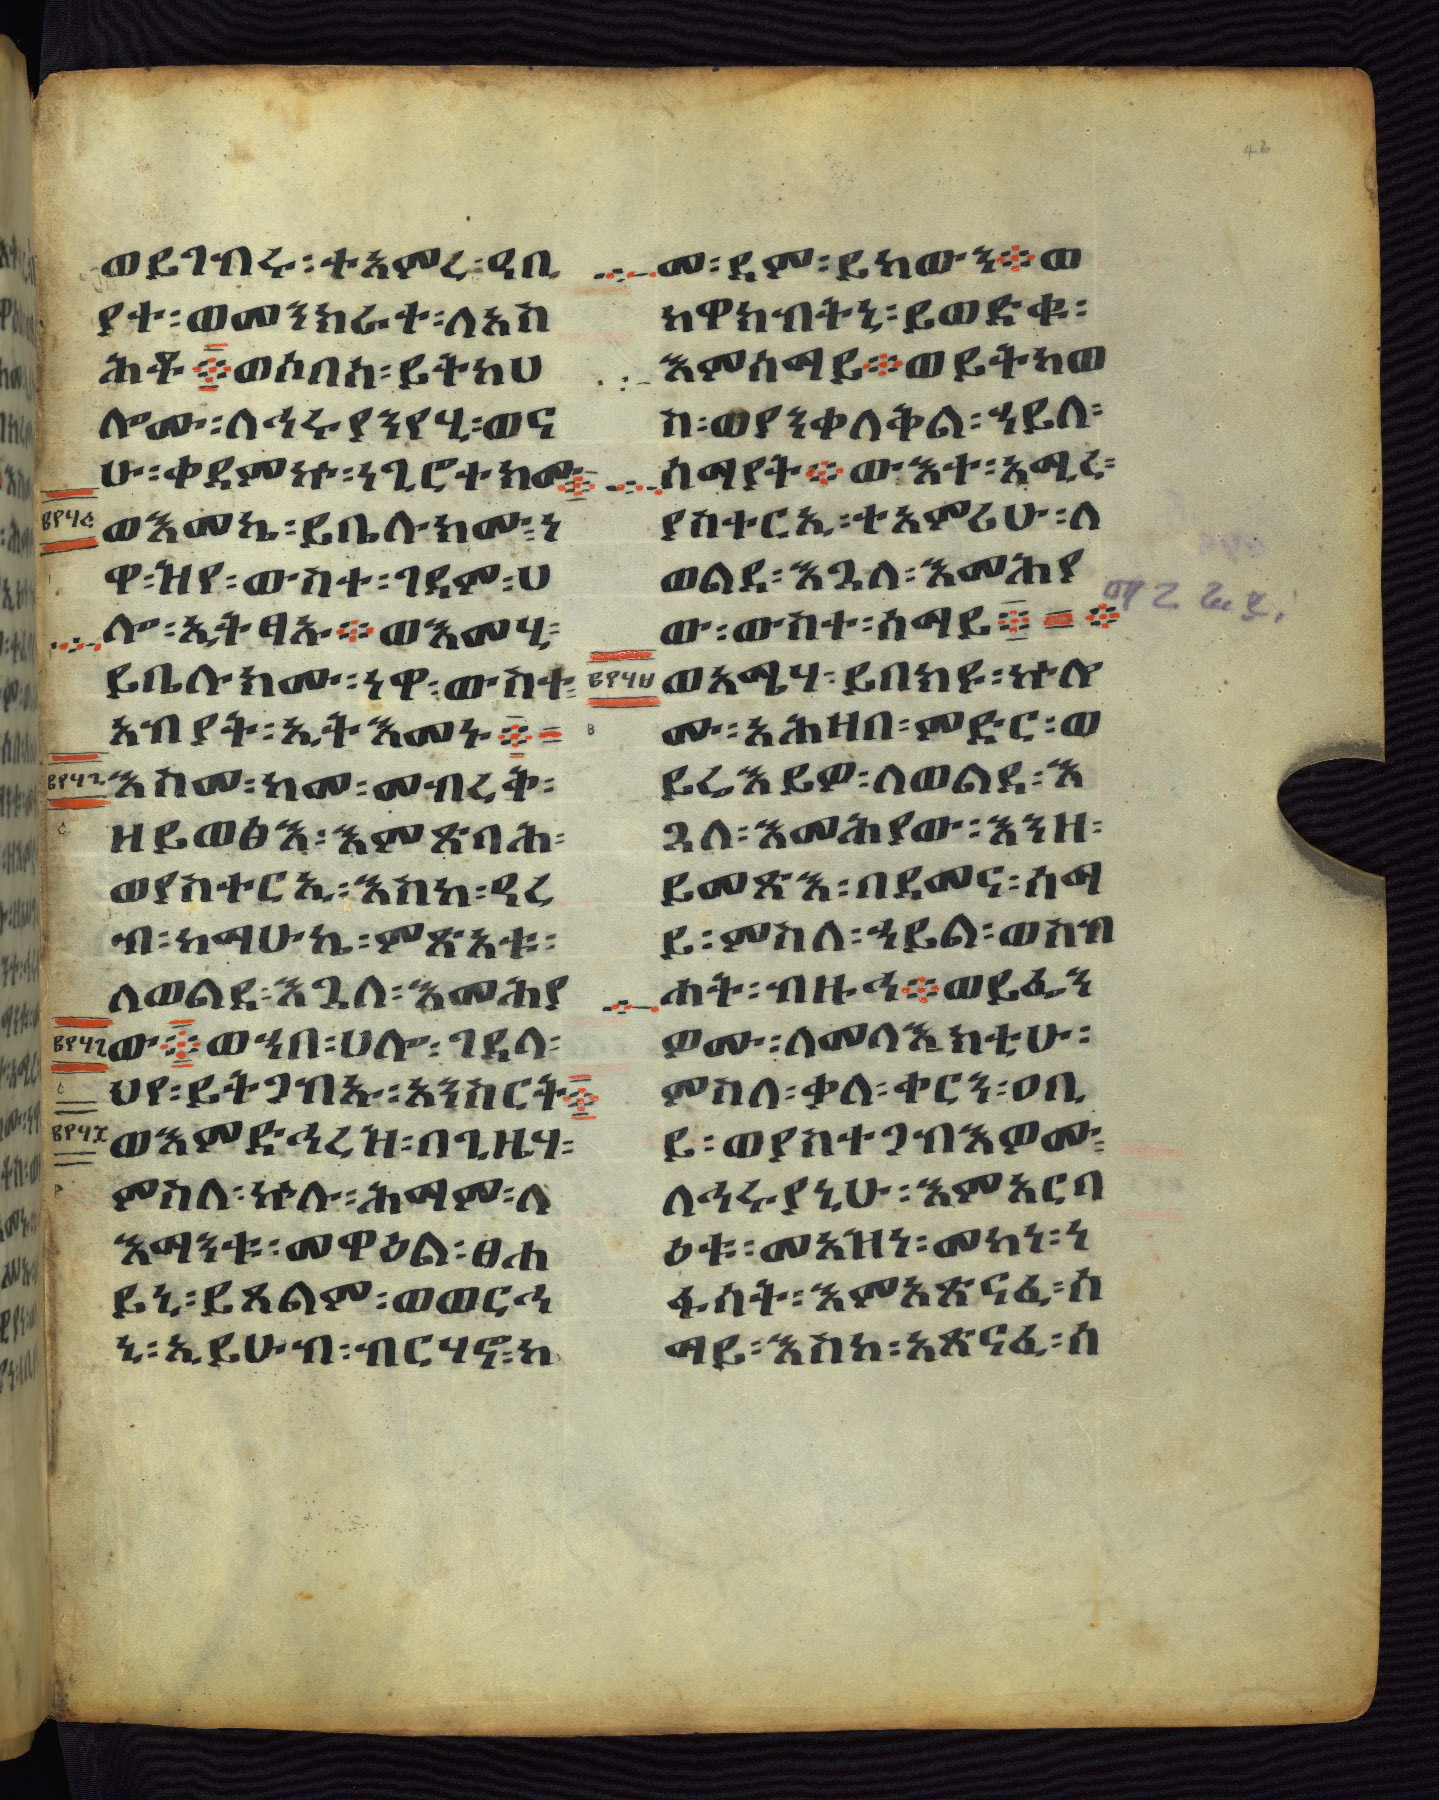 ወይገብሩ፡ተአምረ፡ዳቢ
ያተ፡ወመንክራተ፡ለአስ
ሕቶ፨ወሶበአ፡ይትከሀ
ሎሙ፡ለኅሩያንየሂ፡ወና
ሁ፡ቀደምኩ፡ነጊሮተክሙ፨
ወእመኬ፡ይቤሉክሙ፡ነ
ዋ፡ዝየ፡ውስተ፡ገዳም፡ሀ
ሎ፡ኢትፃኡ፨ወእመሂ፡
ይቤሉክሙ፡ነዋ፡ውስተ፡
አብያት፡ኢትእመኑ፨=
እስመ፡ከመ፡መብረቅ፡
ዘይወፅእ፡እምጽባሕ፡
ወያስተርኢ፡እስከ፡ዓረ
ብ፡ከማሁኬ፡ምጽአቱ፡
ለወልደ፡እጓለ፡እመሕያ
ው፨ወኀበ፡ሀሎ፡ገደላ፡
ህየ፡ይትጋብኡ፡አንስርት፨
ወእምድኅረዝ፡በጊዜሃ፡
ምስለ፡ኵሉ፡ሕማም፡ለ
እማንቱ፡መዋዕል፡ፀሐ
ይኒ፡ይጸልም፡ወወርኅ
ኒ፡ኢይሁብ፡ብርሃኖ፡ከ
መ፡ደም፡ይከውን፨ወ
ከዋክብትኒ፡ይወድቁ፡
እምሰማይ፨ወይትከወ
ስ፡ወያንቀለቅል፡ኀይለ፡
ሰማያት፨ውእተ፡አሚረ፡
ያስተርኢ፡ተአምሪሁ፡ለ
ወልደ፡እጓለ፡እመሕያ
ው፡ውስተ፡ሰማይ፨=፨
ወአሜሃ፡ይበክዩ፡ኵሎ
ሙ፡አሕዛበ፡ምድር፡ወ
ይሬእይዎ፡ለወልደ፡እ
ጓለ፡እመሕያው፡እንዘ፡
ይመጽእ፡በደመና፡ሰማ
ይ፡ምስለ፡ኀይል፡ወስብ
ሐት፡ብዙኅ፨ወይፌን
ዎሙ፡ለመላእክቲሁ፡
ምስለ፡ቃለ፡ቀርን፡ዐቢ
ይ፡ወያስተጋብእዎሙ፡
ለኅሩያኒሁ፡እምአርባ
ዕቱ፡መአዝነ፡መካነ፡ን
ፋሳት፡እምአጽናፈ፡ሰ
ማይ፡እስከ፡አጽናፈ፡ሰ